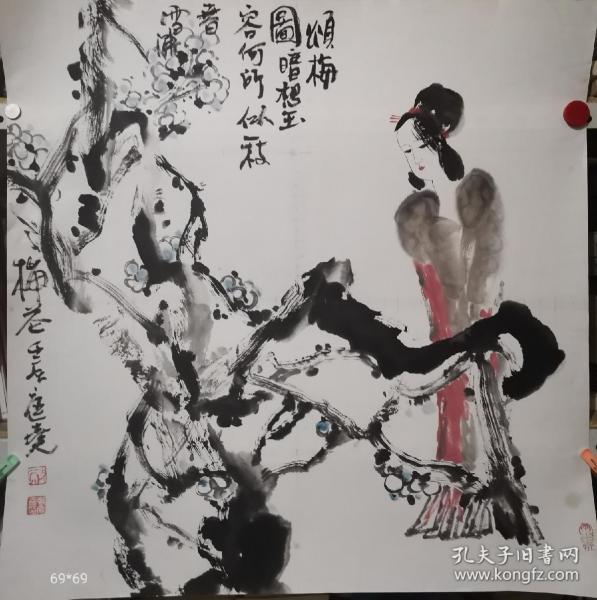 頌梅
圖暗想玉
容何所似一枝
春雪凍
梅花
壬辰
69*69
孔夫子旧书网
www.kongfz.com